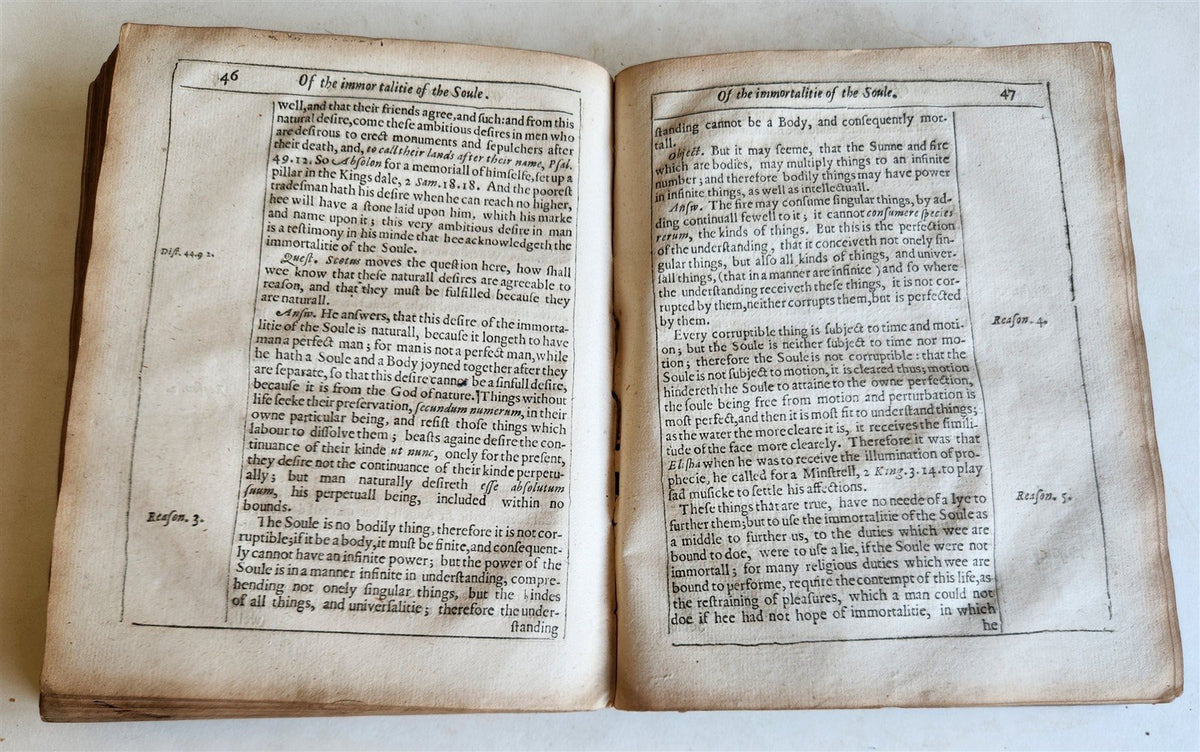 46 Of the immortalitie of the Soule.
well,and that their friends agree,and such: and from this
natural desire,come these ambitious desires in men who
are desirous to erect monuments and sepulchers after
their death, and, to call their lands after their name, Psal.
49.12. So Absolon for a memoriall of himselfe, set up a
pillar in the Kings dale, 2 Sam.18.18. And the poorest
tradesman hath his desire when he can reach no higher,
hee will have a stone laid upon him, which his marke
and name upon it; this very ambitious desire in man
is a testimony in his minde that hee acknowledgeth the
immortalitie of the Soule.
Dist. 44.q 2.
Quest. Scotus moves the question here, how shall
wee know that these naturall desires are agreeable to
reason, and that they must be fulfilled because they
are naturall.
Answ. He answers, that this desire of the immorta-
litie of the Soule is naturall, because it longeth to have
man a perfect man; for man is not a perfect man, while
he hath a Soule and a Body joyned together after they
are separate, so that this desire cannot be a sinfull desire,
because it is from the God of nature. Things without
life seeke their preservation, secundum numerum, in their
owne particular being, and resist those things which
labour to dissolve them; beasts againe desire the con-
tinuance of their kinde ut nunc, onely for the present,
they desire not the continuance of their kinde perpetu-
ally; but man naturally desireth esse absolutum
suum, his perpetuall being, included within no
bounds.
Reason. 3.
The Soule is no bodily thing, therefore it is not cor-
ruptible;if it be a body,it must be finite,and consequent-
ly cannot have an infinite power; but the power of the
Soule is in a manner infinite in understanding, compre-
hending not onely singular things, but the kindes
of all things, and universalitie; therefore the under-
standing
Of the immortalitie of the Soule. 47
standing cannot be a Body, and consequently mor-
tall.
Object. But it may seeme, that the Sunne and fire
which are bodies, may multiply things to an infinite
number; and therefore bodily things may have power
in infinite things, as well as intellectuall.
Answ. The fire may consume singular things, by ad-
ding continuall fewell to it; it cannot consumere species
rerum, the kinds of things. But this is the perfection
of the understanding, that it conceiveth not onely sin-
gular things, but also all kinds of things, and univer-
sall things, (that in a manner are infinite) and so where
the understanding receiveth these things, it is not cor-
rupted by them,neither corrupts them,but is perfected
by them.
Reason. 4.
Every corruptible thing is subject to time and moti-
on; but the Soule is neither subject to time nor mo-
tion; therefore the Soule is not corruptible: that the
Soule is not subject to motion, it is cleared thus; motion
hindereth the Soule to attaine to the owne perfection,
the soule being free from motion and perturbation is
most perfect,and then it is most fit to understand things;
as the water the more cleare it is, it receives the simili-
tude of the face more clearely. Therefore it was that
Elisha when he was to receive the illumination of pro-
phecie, he called for a Minstrell, 2 King.3.14. to play
sad musicke to settle his affections.
Reason. 5.
These things that are true, have no neede of a lye to
further them;but to use the immortalitie of the Soule as
a middle to further us, to the duties which wee are
bound to doe, were to use a lie, if the Soule were not
immortall; for many religious duties which wee are
bound to performe, require the contempt of this life,as
the restraining of pleasures, which a man could not
doe if hee had not hope of immortalitie, in which
he